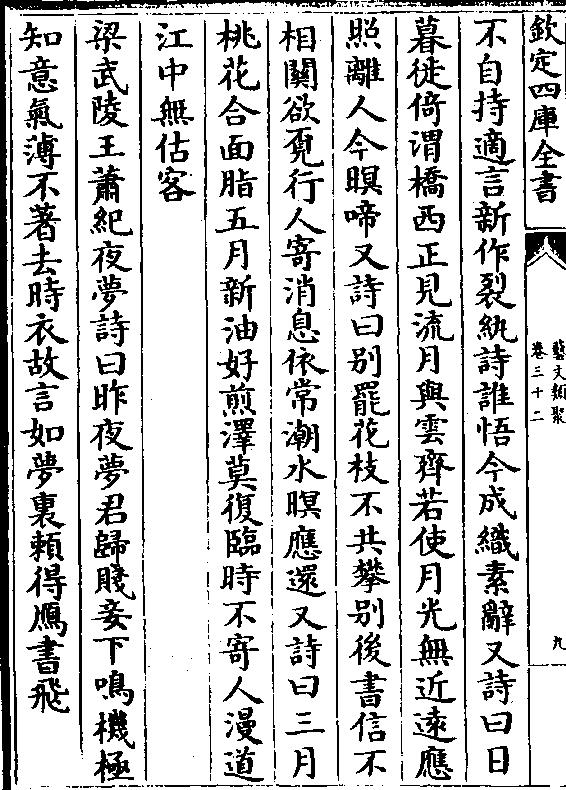 欽定四庫全書
藝文類聚
卷三十二
九
不自持適言新作裂紈詩誰悟今成織素辭又詩曰日
暮徙倚渭橋西正見流月與雲齊若使月光無近遠應
照離人今暝啼又詩曰別罷花枝不共攀別後書信不
相關欲覓行人寄消息依常潮水暝應還又詩曰三月
桃花合面脂五月新油好煎澤莫復臨時不寄人漫道
江中無估客
梁武陵王蕭紀夜夢詩曰昨夜夢君歸賤妾下鳴機極
知意氣薄不著去時衣故言如夢裏賴得鴈書飛